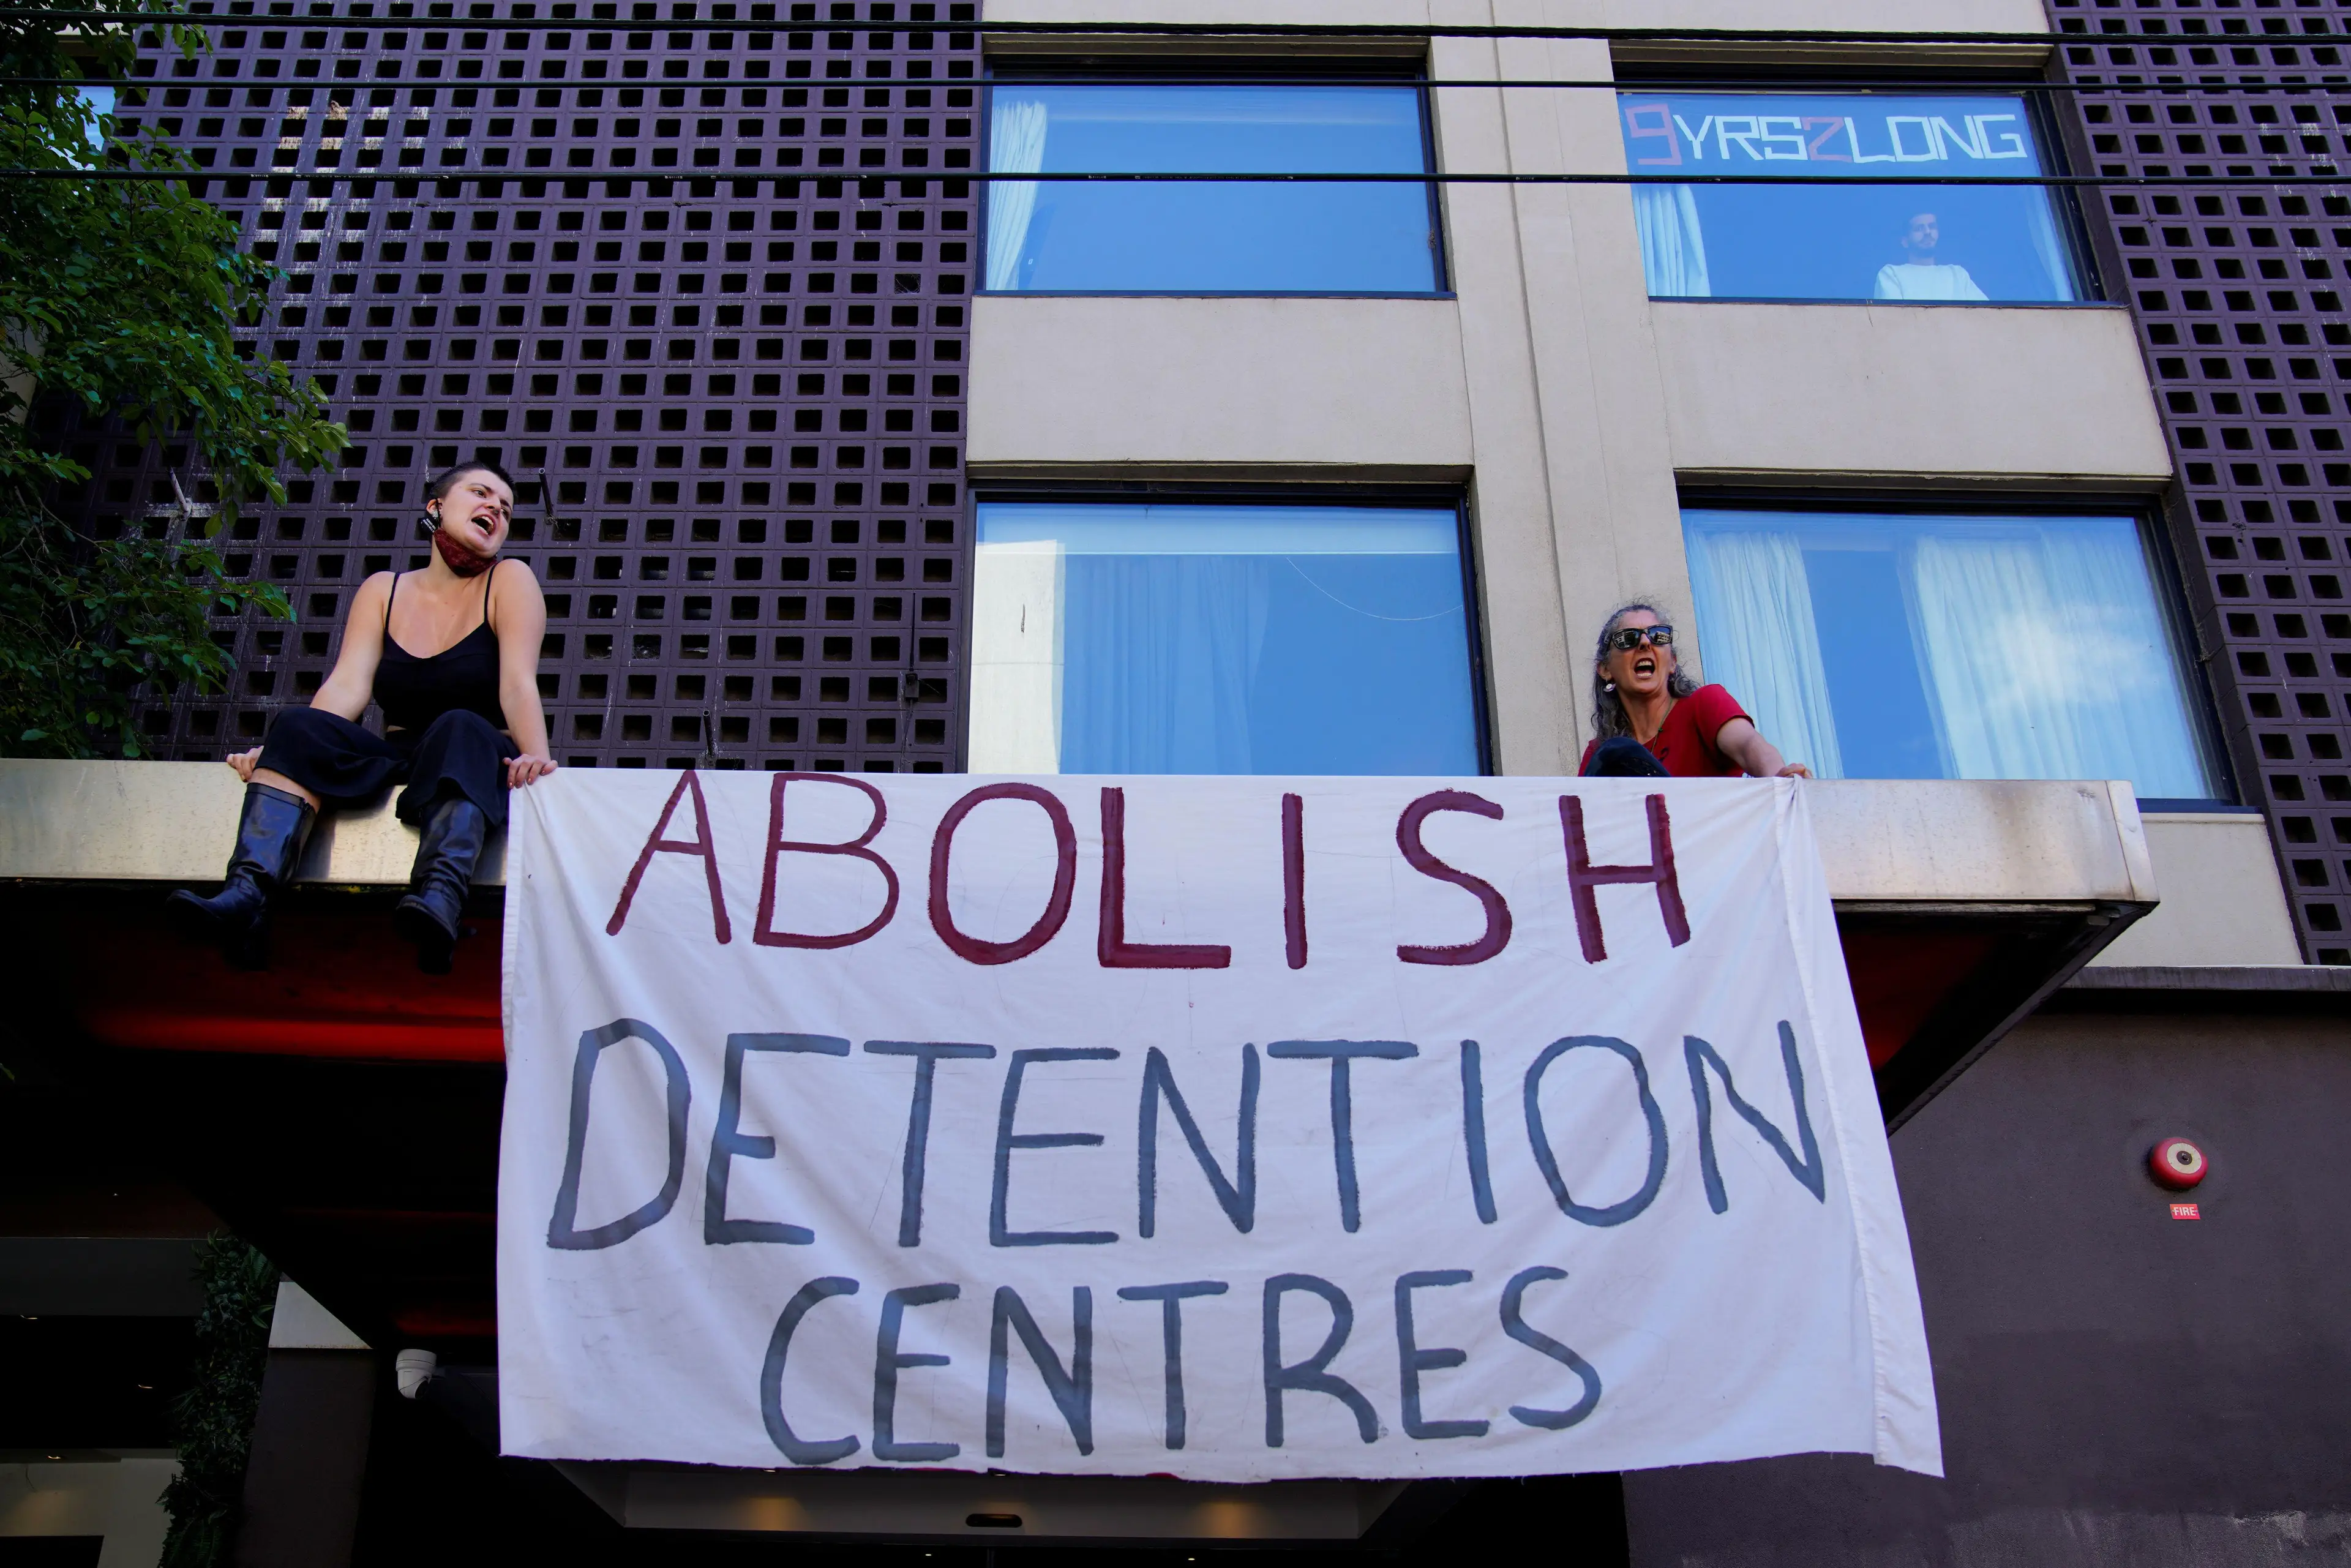 9YRS2LONG
ABOLISH
DETENTION
CENTRES
FIRE